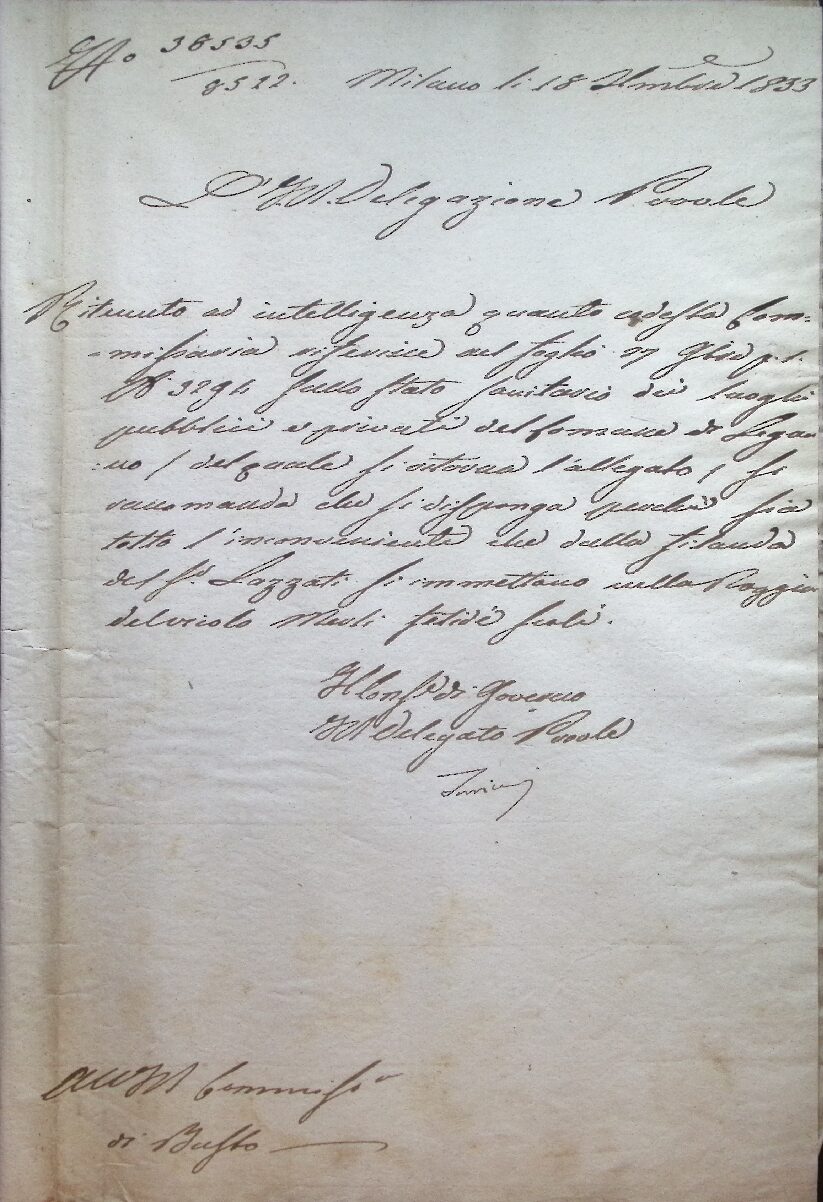 N° 38535
8522. Milano li 18 9mbre 1833
L'I.R. Delegazione Provle
Ritenuto ad intelligenza quanto codesta Com=
=missaria riferisce nel foglio 27 9bre p.p.
N 3294 sullo stato sanitario dei luoghi
pubblici e privati del Comune di Legna=
=no / del quale si ritorna l'allegato / si
raccomanda che si disponga perchè sia
tolto l'inconveniente che dalla filanda
del Sr Lazzati si immettano nella Roggia
del vicolo fetidi scoli.
Il Consre di Governo
IR Delegato Provle
All'IR Commissro
di Busto